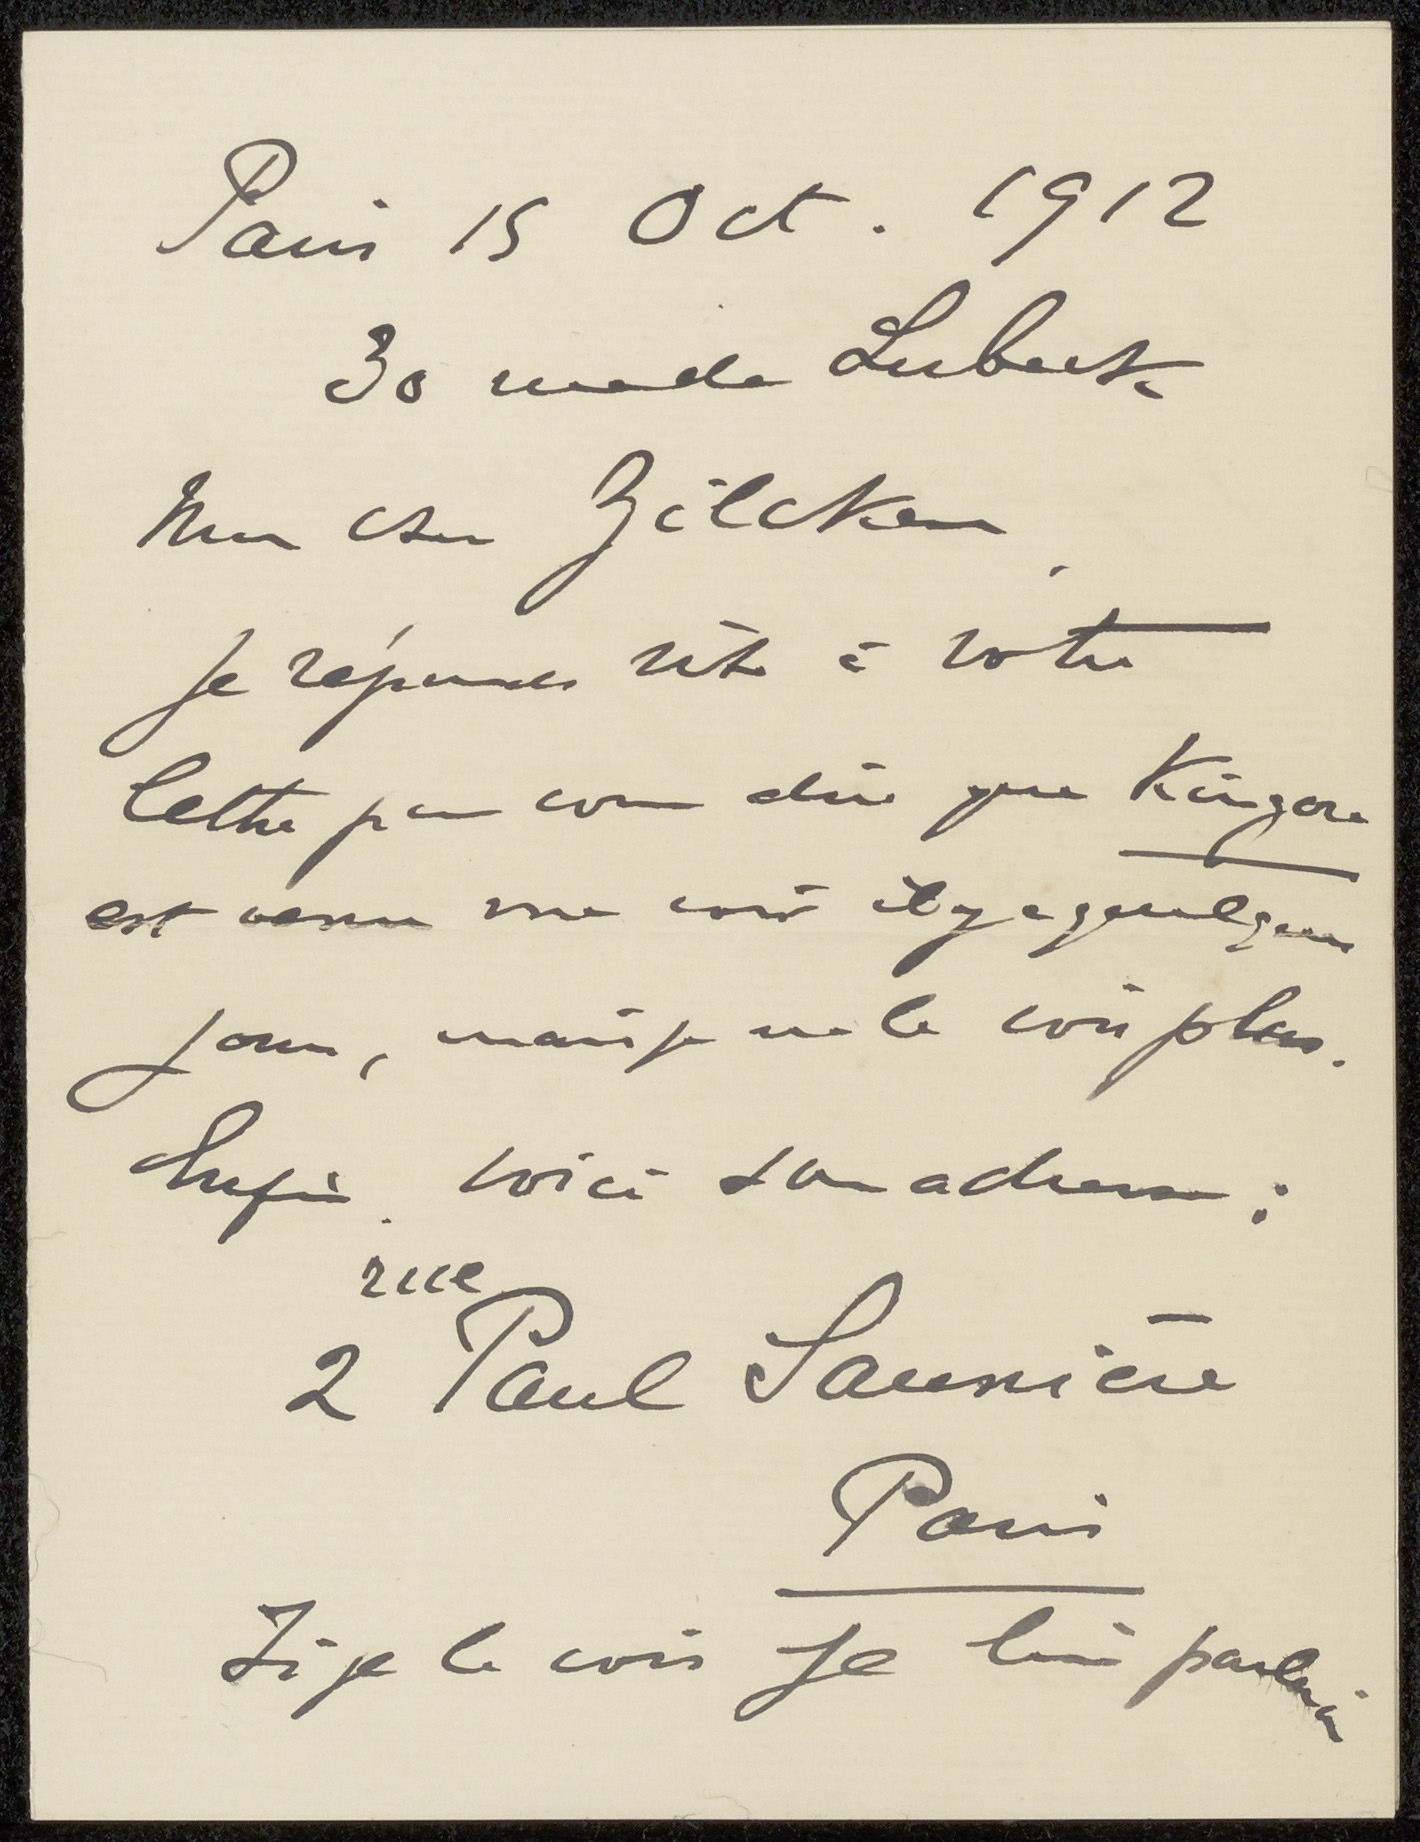 Paris 15 Oct. 1912
30 rue de Lubeck
Mon cher Zilcken,
Je réponds vite à votre
lettre pour vous dire que Kingore
est venu me voir il y a quelques
jours, mais je ne le vois plus.
Enfin, voici son adresse :
rue
2 Paul Saunière
Paris
Si je le vois je lui parlerai